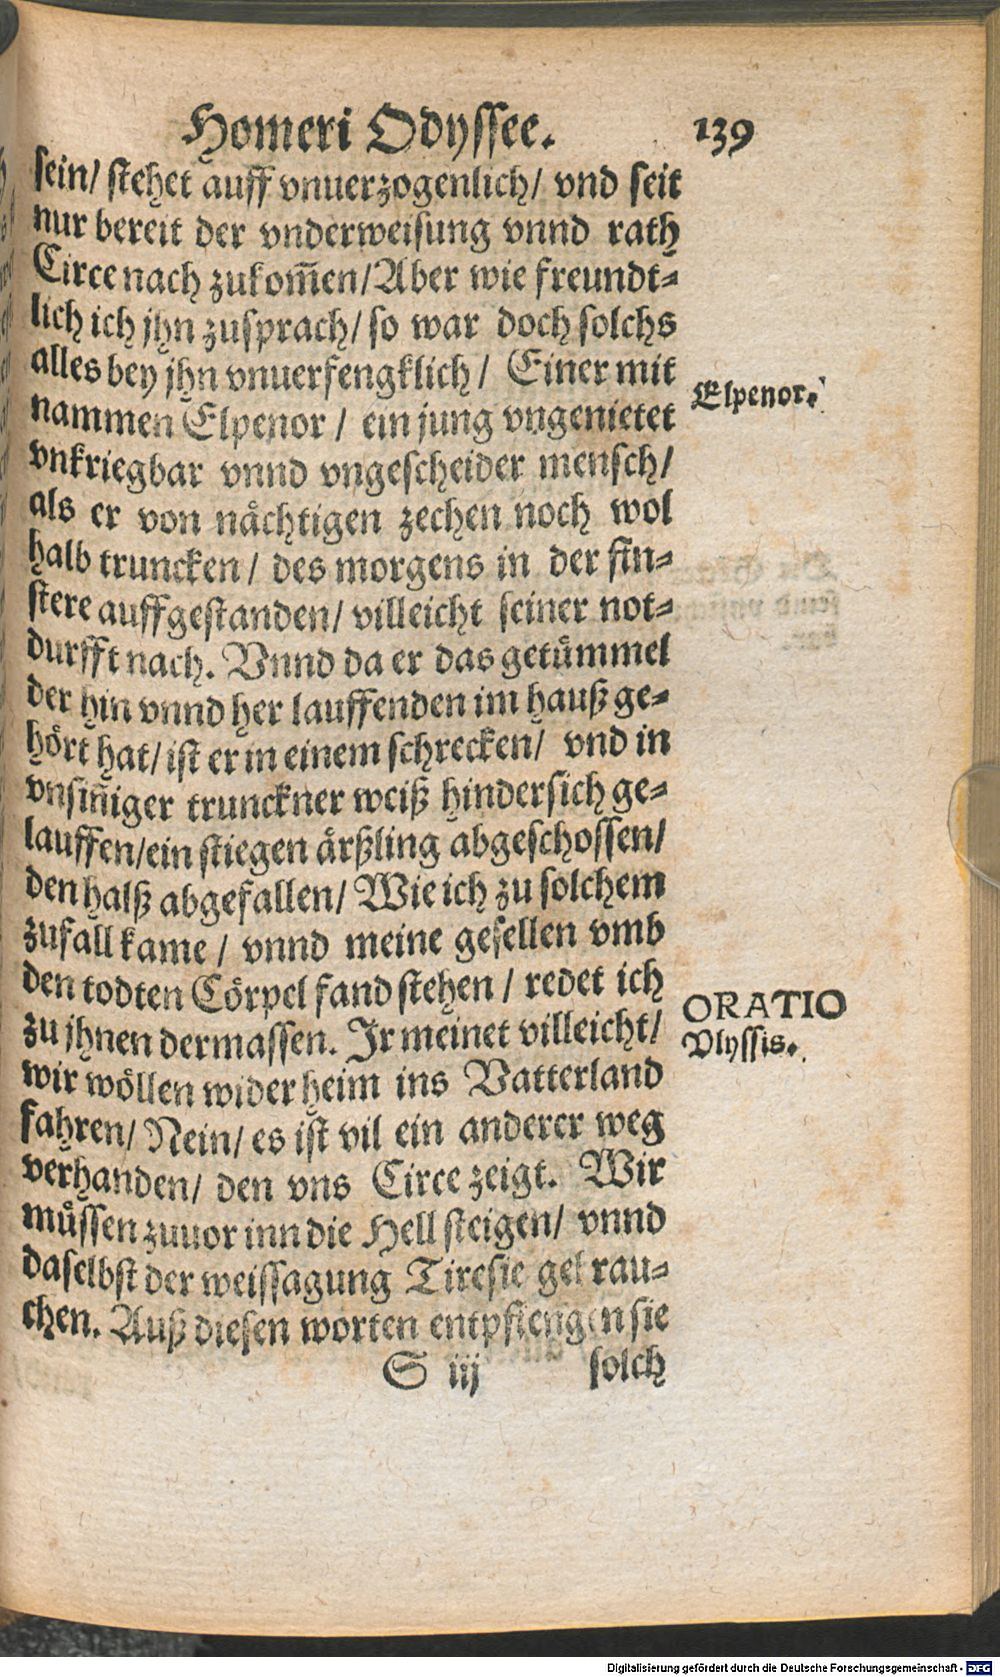 Homeri Odyssee. 139
sein/ stehet auff vnuerzogenlich/ vnd seit
nur bereit der vnderweisung vnnd rath
Circe nach zukom̃en/Aber wie freundt-
lich ich jhn zusprach/ so war doch solchs
alles bey jhn vnuerfengklich/ Einer mit
Elpenor.
nammen Elpenor / ein jung vngenietet
vnkriegbar vnnd vngescheider mensch/
als er von nächtigen zechen noch wol
halb truncken/ des morgens in der fin-
stere auffgestanden/ villeicht seiner not-
durfft nach. Vnnd da er das getümmel
der hin vnnd her lauffenden im hauß ge-
hört hat/ ist er in einem schrecken/ vnd in
vnsiñiger trunckner weiß hindersich ge-
lauffen/ein stiegen ärßling abgeschossen/
den halß abgefallen/ Wie ich zu solchem
zufall kame / vnnd meine gesellen vmb
den todten Cörpel fand stehen / redet ich
ORATIO
zu jhnen dermassen. Ir meinet villeicht/
Vlyssis.
wir wöllen wider heim ins Vatterland
fahren/ Nein/ es ist vil ein anderer weg
verhanden/ den vns Circe zeigt. Wir
müssen zuuor inn die Hell steigen/ vnnd
daselbst der weissagung Tiresie gebrau-
chen. Auß diesen worten entpfiengen sie
S iij solch
Digitalisierung gefördert durch die Deutsche Forschungsgemeinschaft - DFG